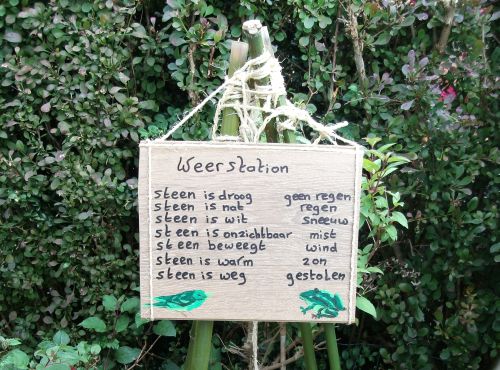 Weerstation
steen is droog geen regen
steen is nat regen
steen is wit sneeuw
steen is onzichtbaar mist
steen beweegt wind
steen is warm zon
steen is weg gestolen